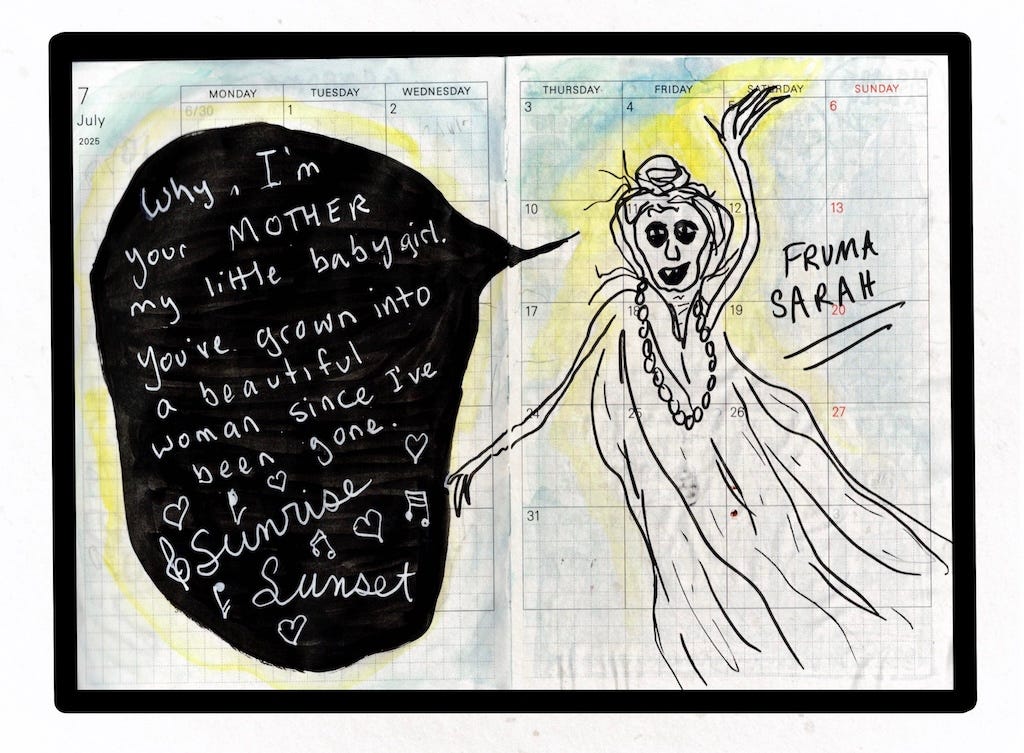 7
July
2025
MONDAY
TUESDAY
WEDNESDAY
6/30
1
2
Why, I'm
your MOTHER
my little baby girl.
You've grown into
a beautiful
woman since I've
been gone.
Sunrise
Sunset
THURSDAY
FRIDAY
SATURDAY
SUNDAY
3
4
5
6
10
11
12
13
17
18
19
20
24
25
26
27
31
FRUMA
SARAH